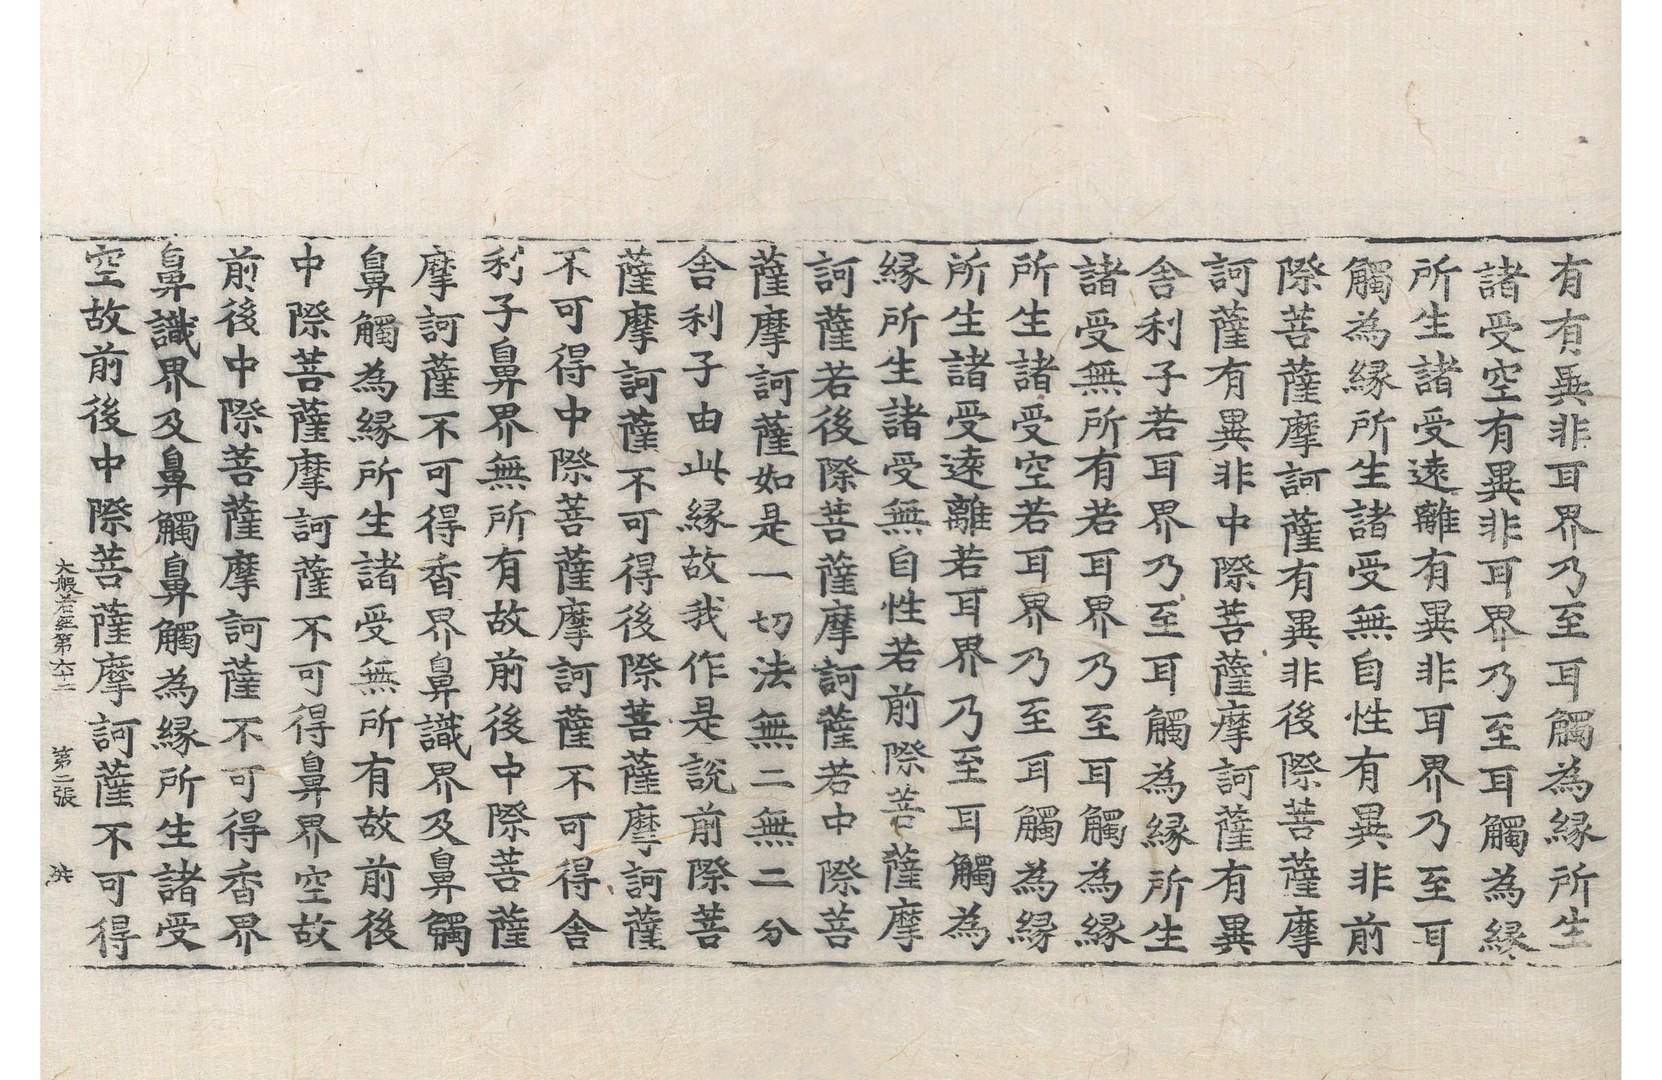 有有異非耳界乃至耳觸為緣所生
諸受空有異非耳界乃至耳觸為緣
所生諸受遠離有異非耳界乃至耳
觸為緣所生諸受無自性有異非前
際菩薩摩訶薩有異非後際菩薩摩
訶薩有異非中際菩薩摩訶薩有異
舍利子若耳界乃至耳觸為緣所生
諸受無所有若耳界乃至耳觸為緣
所生諸受空若耳界乃至耳觸為緣
所生諸受遠離若耳界乃至耳觸為
緣所生諸受無自性若前際菩薩摩
訶薩若後際菩薩摩訶薩若中際菩
薩摩訶薩如是一切法無二無二分
舍利子由此緣故我作是說前際菩
薩摩訶薩不可得後際菩薩摩訶薩
不可得中際菩薩摩訶薩不可得舍
利子鼻界無所有故前後中際菩薩
摩訶薩不可得香界鼻識界及鼻觸
鼻觸為緣所生諸受無所有故前後
中際菩薩摩訶薩不可得鼻界空故
前後中際菩薩摩訶薩不可得香界
鼻識界及鼻觸鼻觸為緣所生諸受
空故前後中際菩薩摩訶薩不可得
大般若經第六十二 第二張